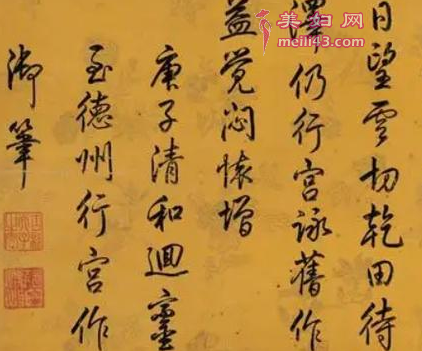 日望雲切乾田待
澤仍行宮詠舊作
益覺悶懷增
庚子清和迴鑾
至德州行宮作
御筆
美妇网
meili43.com